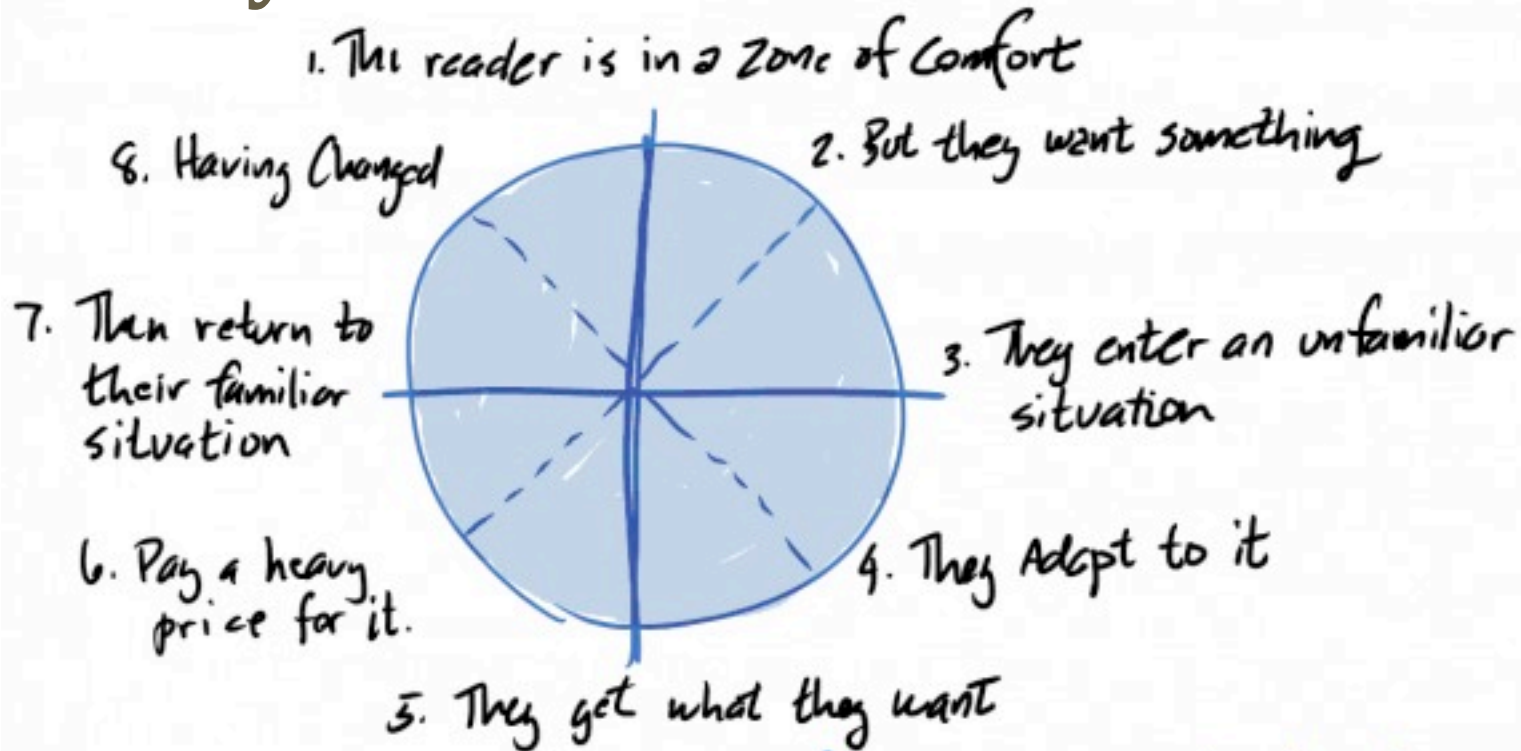 1. The reader is in a zone of comfort
2. But they want something
3. They enter an unfamilior
situation
4. They Adapt to it
5. They get what they want
6. Pay a heavy
price for it.
7. Then return to
their familior
situation
8. Having Changed